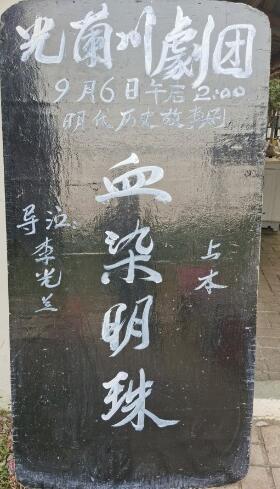 光蘭川劇团
9月6日午后2:00
明代历史故事剧
血染明珠
导泣：
李光兰
上本